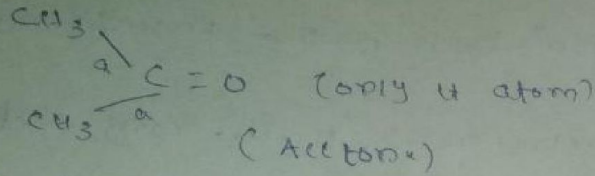 CH3
a C = O (only 4 atom)
CH3 a
(Acetone)